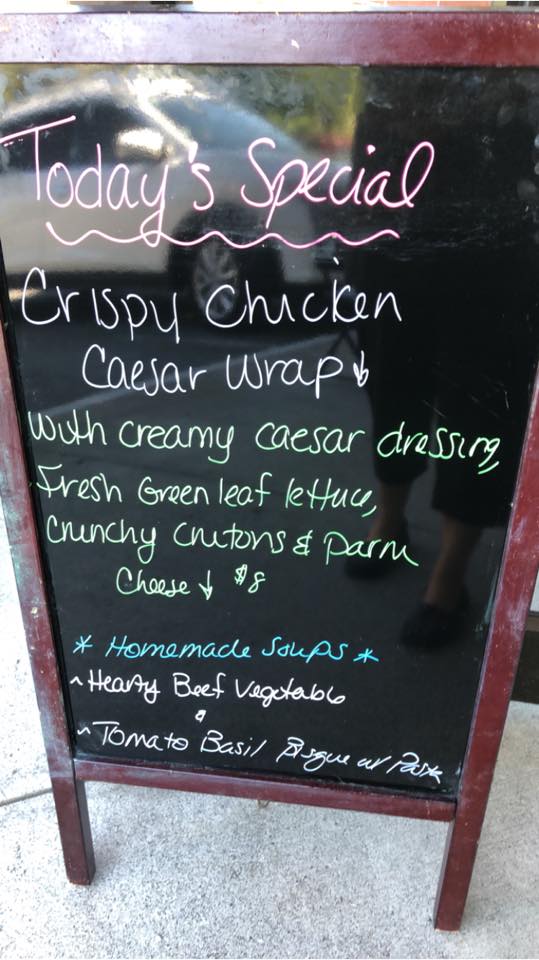 Today's Special
Crispy Chicken
Caesar Wrap ↓
with creamy caesar dressing,
Fresh Green leaf lettuce,
Crunchy Crutons & parm
Cheese ↓ $8
* Homemade Soups *
~ Hearty Beef Vegetable
&
~ Tomato Basil Bisque w/ Pasta